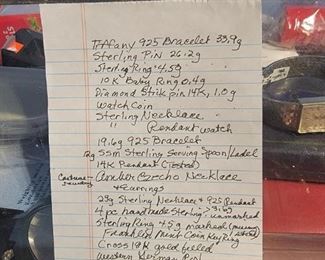 Tiffany 925 Bracelet 33.9g
Sterling Pin 26.2g
Sterling Ring 4.5g
10K Baby Ring 0.4g
Diamond Stik pin 14K, 1.0g
Watch Coin
Sterling Necklace
" Pendant watch
19.6g 925 Bracelet
12g SSM Sterling Serving Spoon/Ladel
14K Pendant (Tested)
Costume Jewelry Czecho Necklace
& Earrings
23g Sterling Necklace & 925 Pendant
4 pc handmade Sterling, unmarked
Sterling Ring 4.5g marked
Franklin Mint Coin Key Ring
Cross 14K gold filled
Western German Pin